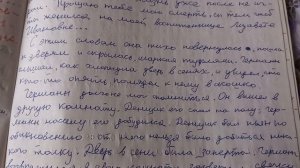 Прощаю тебе мою смерть, с тем, чтоб
ты женился на моей воспитаннице Лизавете
Ивановне...
С этим словом она тихо повернулась, пошла
к дверям и скрылась, шаркая туфлями. Германн
слышал, как хлопнула дверь в сенях, и увидел, что
кто-то опять поглядел к нему в окошко.
Германн долго не мог опомниться. Он вышел в
другую комнату. Денщик его спал на полу; Гер-
манн насилу его добудился. Денщик был пьян по
обыкновению: от него нельзя было добиться ника-
кого толку. Дверь в сени была заперта. Германн